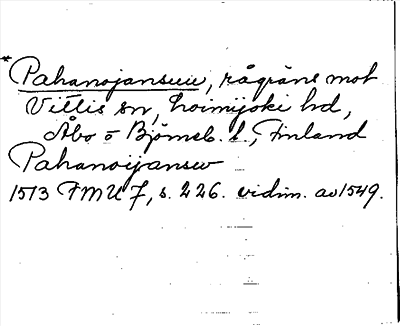 * Pahanojansuu, rågräns mot
Vittis sn, Loimijoki hd,
Åbo o Björneb. l., Finland
Pahanoijansw
1513 FMU 7, s. 226. vidim. av 1549.